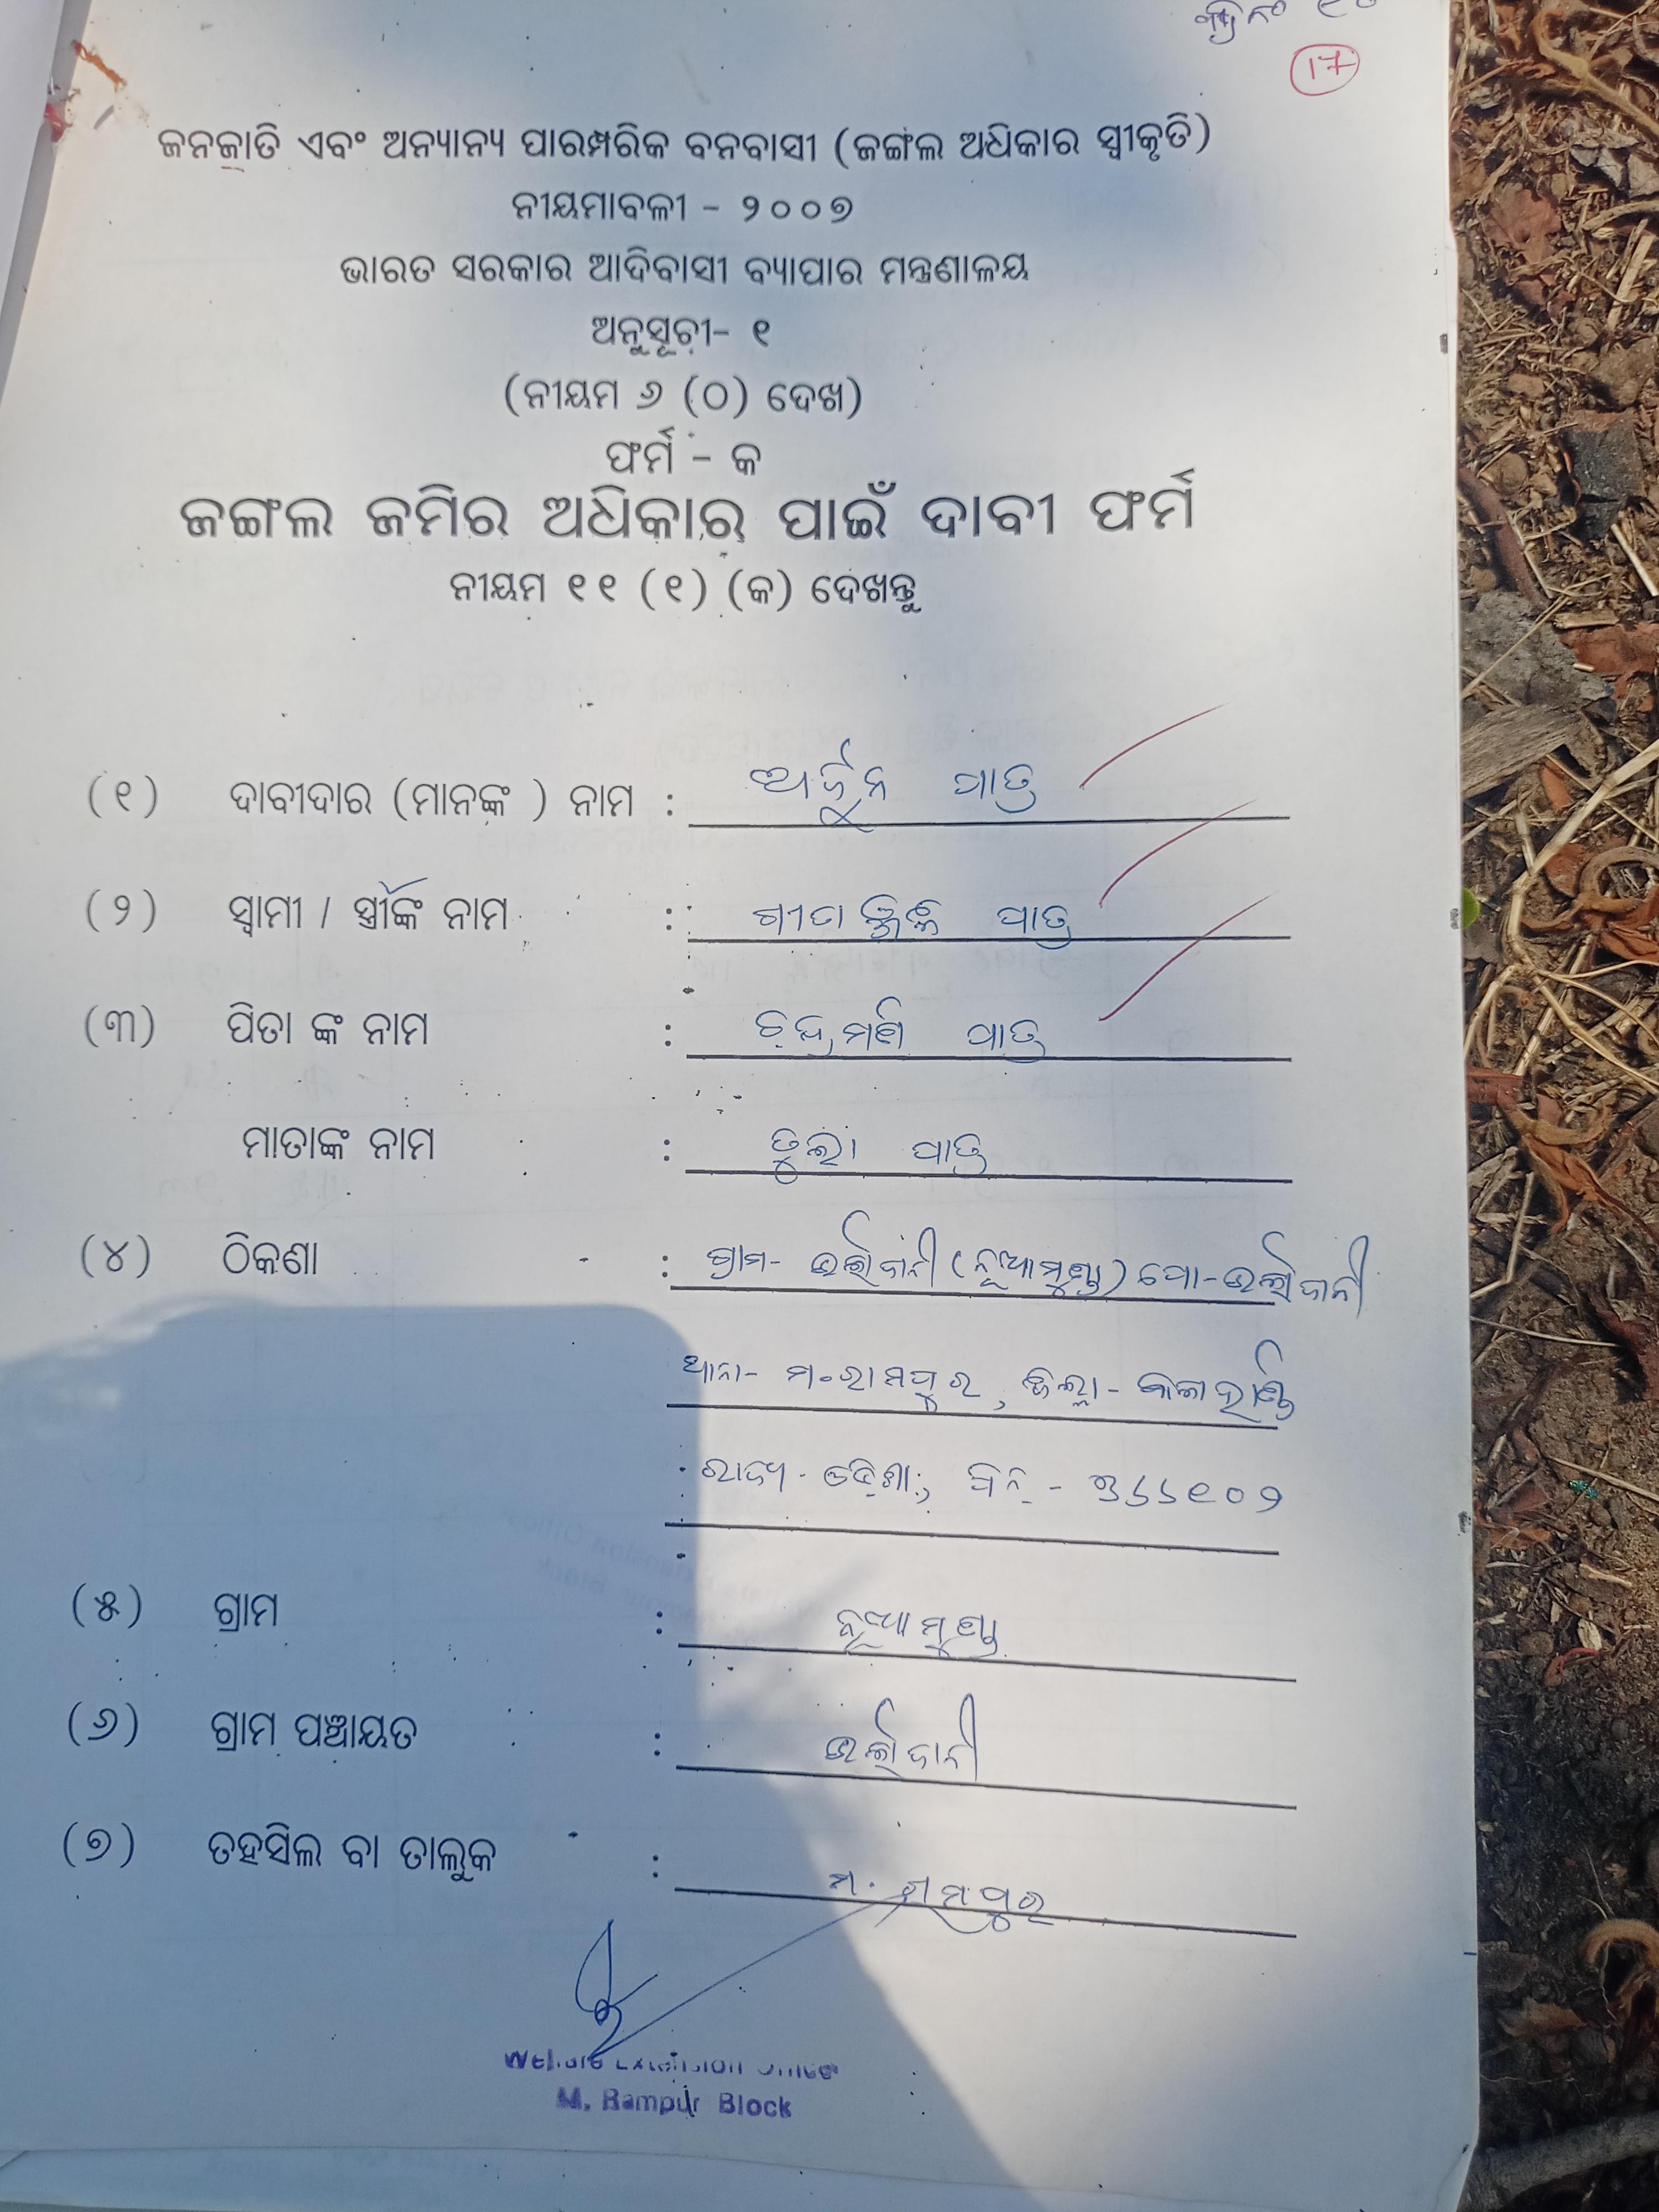 17
ଜନଜାତି ଏବଂ ଅନ୍ୟାନ୍ୟ ପାରମ୍ପରିକ ବନବାସୀ (ଜଙ୍ଗଲ ଅଧିକାର ସ୍ଵୀକୃତି)
ନୀୟମାବଳୀ - ୨୦୦୭
ଭାରତ ସରକାର ଆଦିବାସୀ ବ୍ୟାପାର ମନ୍ତ୍ରଣାଳୟ
ଅନୁସୂଚୀ- ୧
(ନୀୟମ ୬ (ଠ) ଦେଖ)
ଫର୍ମ - କ
ଜଙ୍ଗଲ ଜମିର ଅଧିକାର ପାଇଁ ଦାବୀ ଫର୍ମ
ନୀୟମ ୧୧ (୧) (କ) ଦେଖନ୍ତୁ
(୧) ଦାବୀଦାର (ମାନଙ୍କ ) ନାମ : ଅର୍ଜୁନ ପାତ୍ର
(୨) ସ୍ଵାମୀ / ସ୍ତ୍ରୀଙ୍କ ନାମ : ପାତ୍ର
(୩) ପିତା ଙ୍କ ନାମ : ଚନ୍ଦ୍ରମଣି ପାତ୍ର
ମାତାଙ୍କ ନାମ : ତୁଲା ପାତ୍ର
(୪) ଠିକଣା : ଗ୍ରାମ- (ନୂଆମୁଣ୍ଡା) ପୋ-
ଥାନା- ମ.ରାମପୁର, ଜିଲ୍ଲା- କଳାହାଣ୍ଡି
ରାଜ୍ୟ - ଓଡ଼ିଶା, ପିନ୍ - ୭୬୬୧୦୨
(୫) ଗ୍ରାମ : ନୂଆମୁଣ୍ଡା
(୬) ଗ୍ରାମ ପଞ୍ଚାୟତ :
(୭) ତହସିଲ ବା ତାଲୁକ : ମ. ରାମପୁର
Welfare Extension Officer
M. Rampur Block